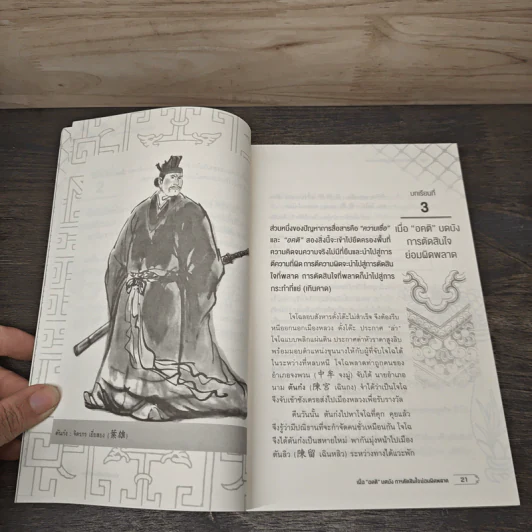 ตันก๋ง : จิตรกร เย่สยง (葉雄)
บทเรียนที่
3
เมื่อ "อคติ" บดบัง
การตัดสินใจ
ย่อมผิดพลาด
ส่วนหนึ่งของปัญหาการสื่อสารคือ "ความเชื่อ"
และ "อคติ" สองสิ่งนี้จะเข้าไปยึดครองพื้นที่
ความคิดจนความจริงไม่มีที่ยืนและนำไปสู่การ
ตีความที่ผิด การตีความผิดจะนำไปสู่การตัดสิน
ใจที่พลาด การตัดสินใจที่พลาดก็นำไปสู่การ
กระทำที่แย่ (เกินคาด)
โจโฉลอบสังหารตั๋งโต๊ะไม่สำเร็จ จึงต้องรีบ
หนีออกนอกเมืองหลวง ตั๋งโต๊ะ ประกาศ "ล่า"
โจโฉแบบพลิกแผ่นดิน ประกาศค่าหัวราคาสูงลิบ
พร้อมมอบตำแหน่งขุนนางให้กับผู้ที่จับโจโฉได้
ในระหว่างที่หลบหนี โจโฉพลาดท่าถูกคนของ
อำเภอจงพวน (中牟 จงมู่) จับได้ นายอำเภอ
นาม ตันก๋ง (陳宮 เฉินกง) จำได้ว่าเป็นโจโฉ
จึงจับเข้าขังเตรียมส่งไปเมืองหลวงเพื่อรับรางวัล
คืนวันนั้น ตันก๋งไปหาโจโฉที่คุก คุยแล้ว
จึงรู้ว่ามีปณิธานที่จะกำจัดคนชั่วเหมือนกัน โจโฉ
จึงได้ตันก๋งเป็นสหายใหม่ พากันมุ่งหน้าไปเมือง
ตันลิว (陳留 เฉินหลิว) ระหว่างทางได้แวะพัก
เมื่อ "อคติ" บดบัง การตัดสินใจย่อมผิดพลาด 21